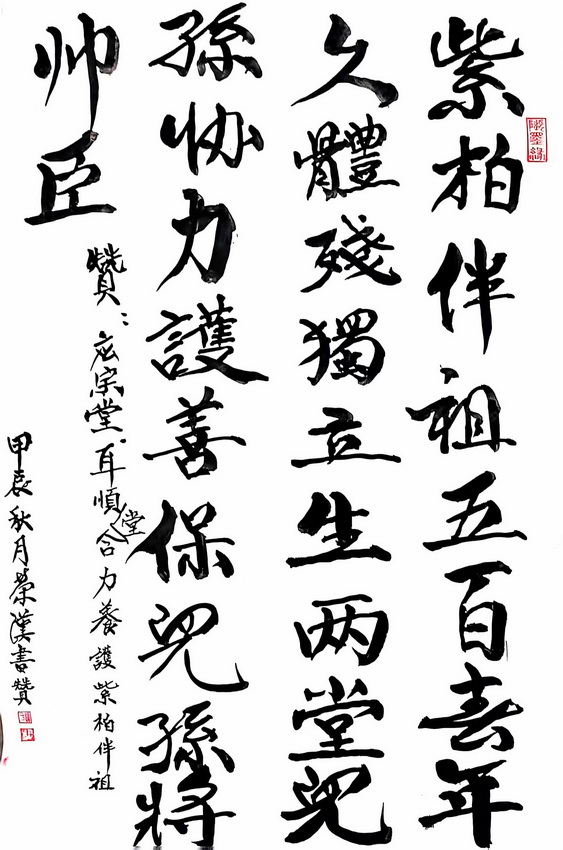 紫柏伴祖五百壽年
久體殘獨立生两堂兒
孫协力護善保兒孫將
帅臣
贊:宏宗堂、耳順堂合力養護紫柏伴祖
甲辰秋月榮漢書贊